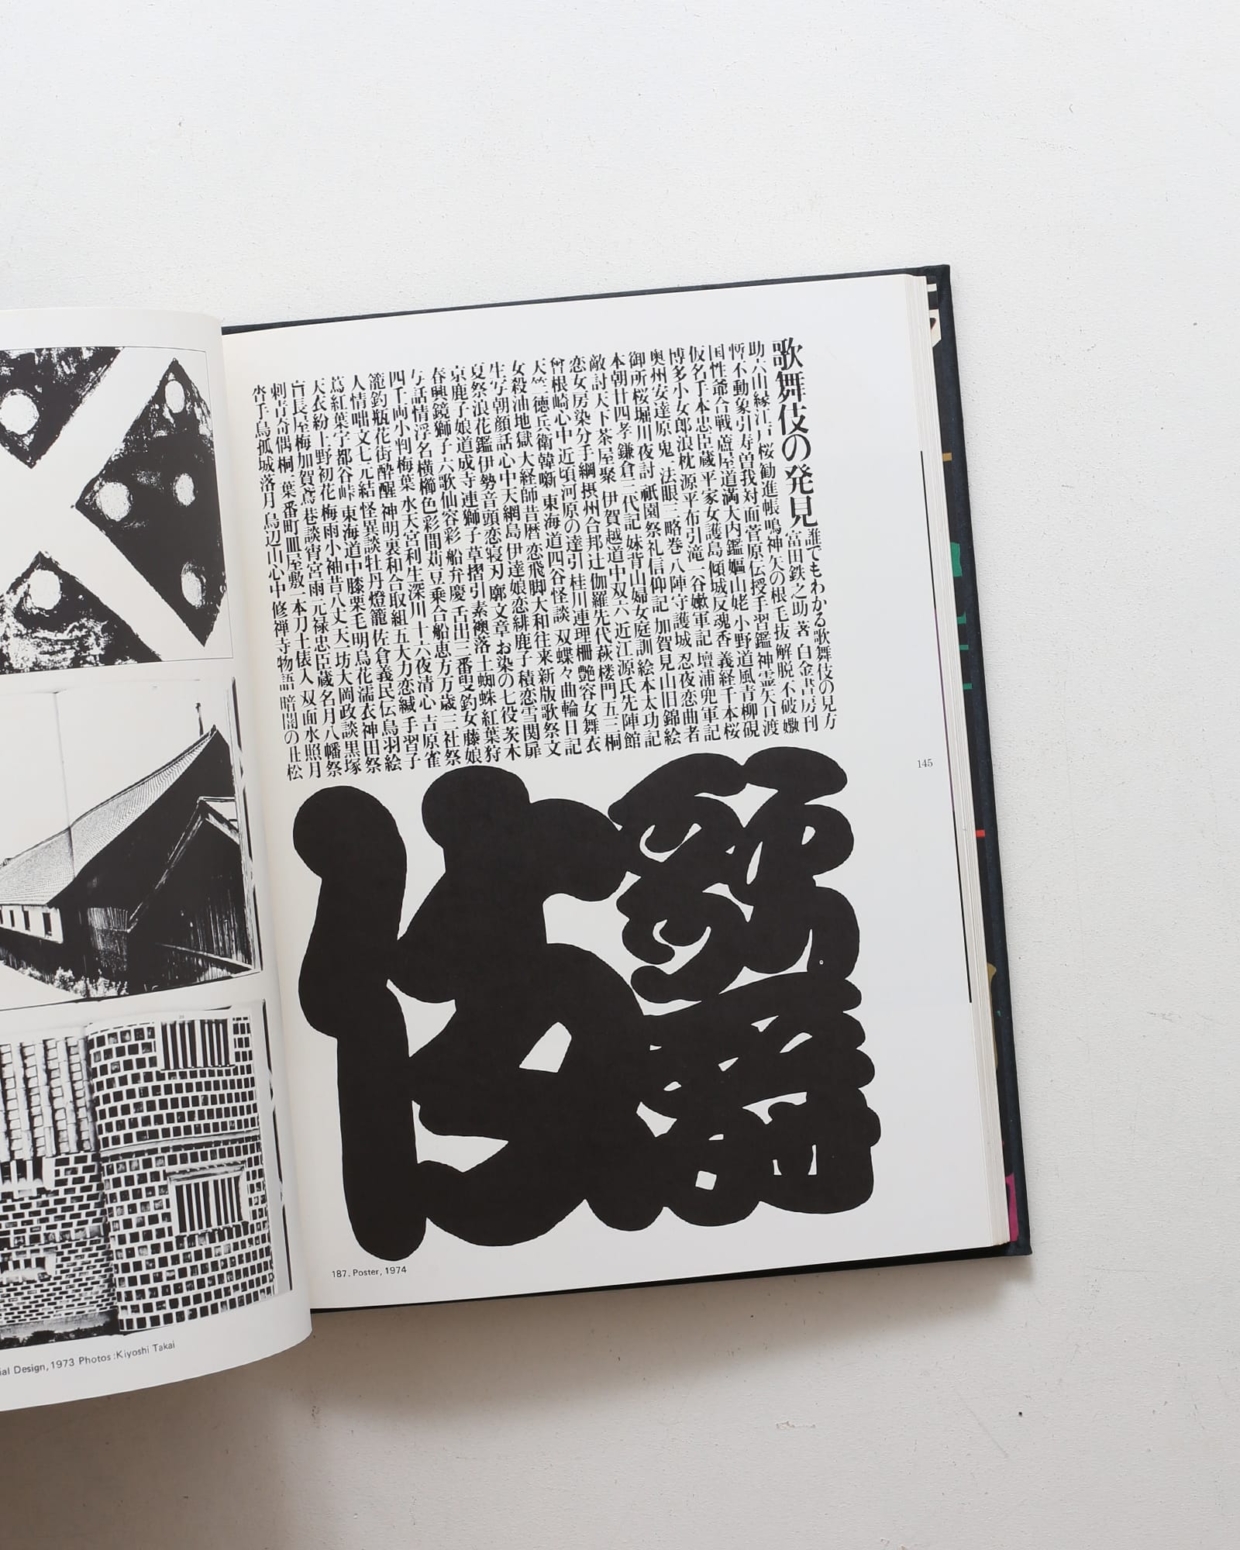 ial Design, 1973 Photos: Kiyoshi Takai
歌舞伎の発見
誰でもわかる歌舞伎の見方
富田鉄之助・著 白金書房刊
助六由縁江戸桜 勧進帳 鳴神 矢の根 毛抜 解脱 不破 嫐
暫 不動 象引 寿曽我対面 菅原伝授手習鑑 神霊矢口渡
国性爺合戦 蘆屋道満大内鑑 嫗山姥 小野道風青柳硯
仮名手本忠臣蔵 平家女護島 傾城反魂香 義経千本桜
博多小女郎浪枕 源平布引滝 一谷嫩軍記 壇浦兜軍記
奥州安達原 鬼一法眼三略巻 八陣守護城 忍夜恋曲者
御所桜堀川夜討 祇園祭礼信仰記 加賀見山旧錦絵
本朝廿四孝 鎌倉三代記 妹背山婦女庭訓 絵本太功記
敵討天下茶屋聚 伊賀越道中双六 近江源氏先陣館
恋女房染分手綱 摂州合邦辻 伽羅先代萩 楼門五三桐
曽根崎心中 近頃河原の達引 桂川連理柵 艶容女舞衣
天竺徳兵衛韓噺 東海道四谷怪談 双蝶々曲輪日記
女殺油地獄 大経師昔暦 恋飛脚大和往来 新版歌祭文
生写朝顔話 心中天網島 伊達娘恋緋鹿子 積恋雪関扉
夏祭浪花鑑 伊勢音頭恋寝刃 廓文章 お染の七役 茨木
京鹿子娘道成寺 連獅子 草摺引 素襖落 土蜘蛛 紅葉狩
春興鏡獅子 六歌仙容彩 船弁慶 舌出三番叟 釣女 藤娘
与話情浮名横櫛 色彩間苅豆 乗合船恵方万歳 三社祭
四千両小判梅葉 水天宮利生深川 十六夜清心 吉原雀
籠釣瓶花街酔醒 神明恵和合取組 五大力恋緘 手習子
人情噺文七元結 怪異談牡丹燈籠 佐倉義民伝 鳥羽絵
蔦紅葉宇都谷峠 東海道中膝栗毛 明烏花濡衣 神田祭
天衣紛上野初花 梅雨小袖昔八丈 天一坊大岡政談 黒塚
盲長屋梅加賀鳶 巷談宵宮雨 元禄忠臣蔵 名月八幡祭
刺青奇偶 桐一葉 番町皿屋敷 一本刀土俵入 双面水照月
沓手鳥孤城落月 鳥辺山心中 修禅寺物語 暗闇の丑松
歌舞
伎
187. Poster, 1974
145